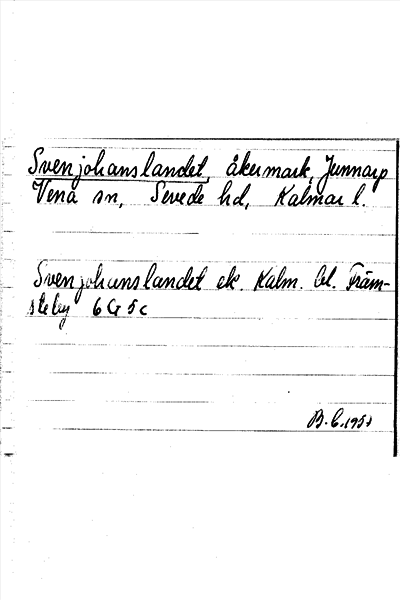 Svenjohanslandet, åkermark, Junnarp
Vena sn, Sevede hd, Kalmar l.
Svenjohanslandet ek. Kalm. bl. Främ-
steby 6 G 5 c
B. C. 195